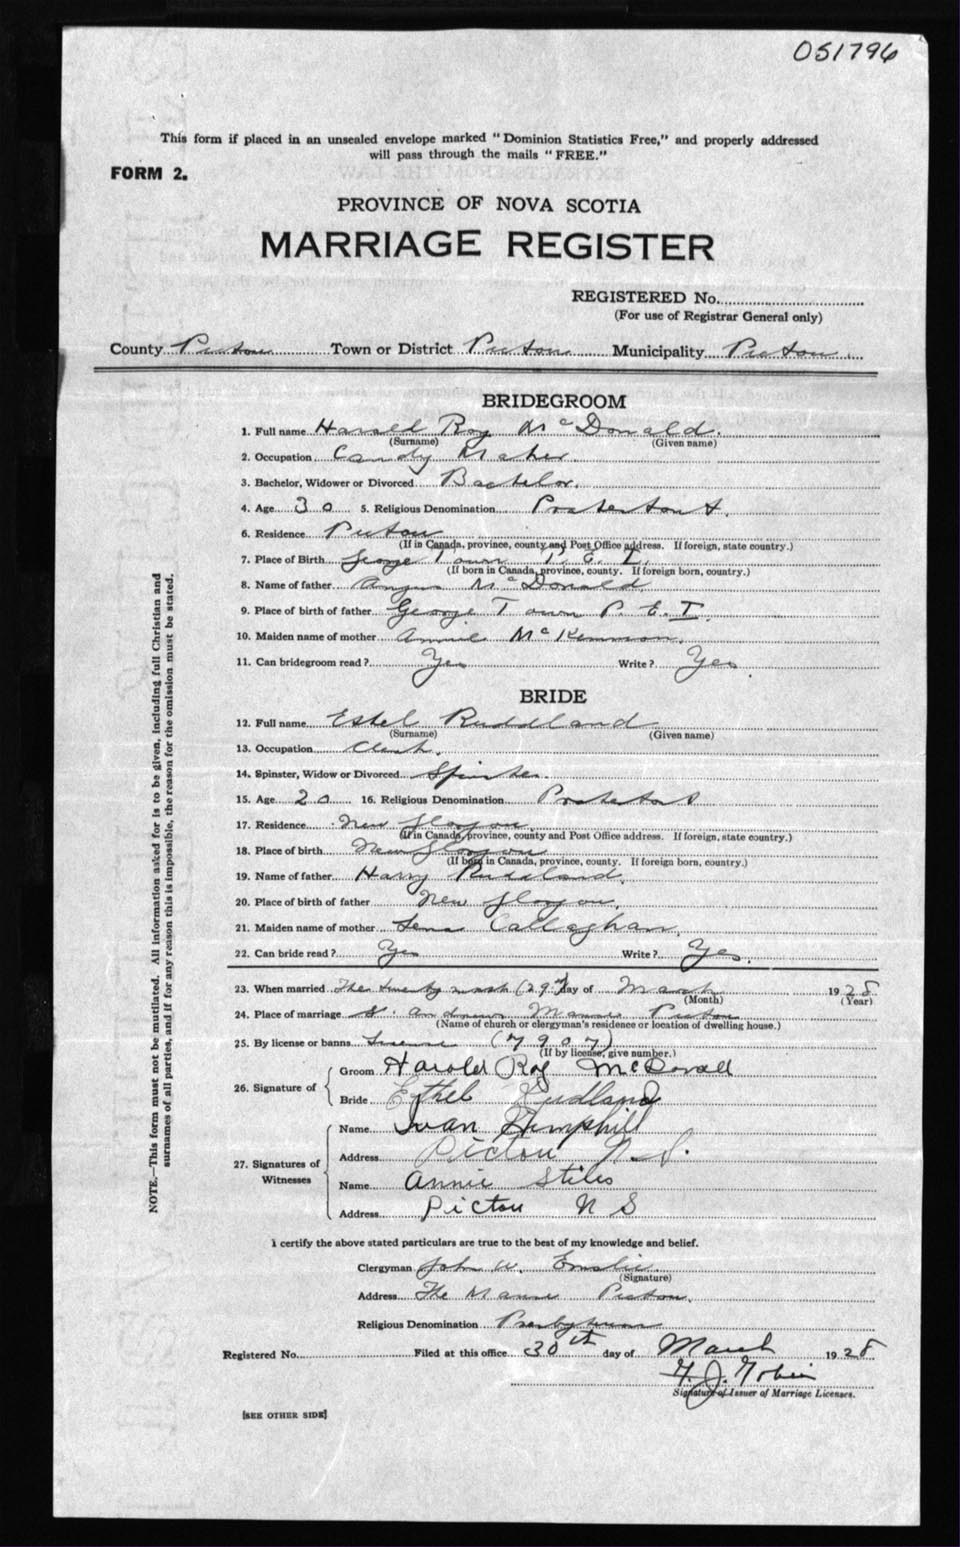 051796
This form if placed in an unsealed envelope marked "Dominion Statistics Free," and properly addressed
will pass through the mails "FREE."
FORM 2.
PROVINCE OF NOVA SCOTIA
MARRIAGE REGISTER
REGISTERED No.
(For use of Registrar General only)
County Pictou Town or District Pictou Municipality Pictou
BRIDEGROOM
1. Full name Harold Roy McDonald.
(Surname) (Given name)
2. Occupation Candy Maker
3. Bachelor, Widower or Divorced Bachelor.
4. Age 30 5. Religious Denomination
6. Residence Pictou
(If in Canada, province, county and Post Office address. If foreign, state country.)
7. Place of Birth George Town P. E. I.
(If born in Canada, province, county. If foreign born, country.)
8. Name of father Angus McDonald
9. Place of birth of father George Town P. E. I.
10. Maiden name of mother Annie McKinnon.
11. Can bridegroom read? Yes Write? Yes
BRIDE
12. Full name Estel Ruddland
(Surname) (Given name)
13. Occupation Clerk.
14. Spinster, Widow or Divorced Spinster.
15. Age 20 16. Religious Denomination
17. Residence New Glasgow
(If in Canada, province, county and Post Office address. If foreign, state country.)
18. Place of birth New Glasgow
(If born in Canada, province, county. If foreign born, country.)
19. Name of father Harry Ruddland.
20. Place of birth of father New Glasgow.
21. Maiden name of mother Lena Callaghan.
22. Can bride read? Yes Write? Yes.
NOTE.—This form must not be mutilated. All information asked for is to be given, including full Christian and
surnames of all parties, and if for any reason this is impossible, the reason for the omission must be stated.
23. When married The twenty (29th) day of March 1928
(Month) (Year)
24. Place of marriage St. Andrews Manse Pictou
(Name of church or clergyman's residence or location of dwelling house.)
25. By license or banns License (7907)
(If by license, give number.)
26. Signature of
Groom Harold Roy McDonald
Bride Ethel Rudland
27. Signatures of
Witnesses
Name Ivan Hemphill
Address Pictou N.S.
Name Annie Stiles
Address Pictou N S
I certify the above stated particulars are true to the best of my knowledge and belief.
Clergyman John W. Emslie.
(Signature)
Address The Manse Pictou.
Religious Denomination Presbyterian
Registered No. Filed at this office 30th day of March 1928
Signature of Issuer of Marriage Licenses.
[SEE OTHER SIDE]